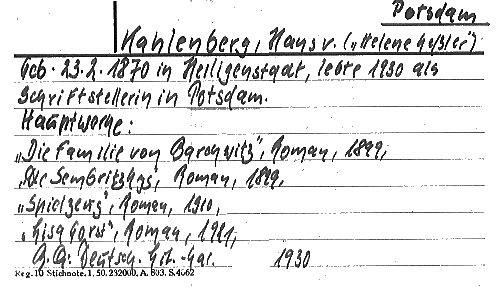 Potsdam
Kahlenberg, Hans v. („Helene Keßler")
Geb. 23.2.1870 in Heiligenstadt, lebte 1930 als
Schriftstellerin in Potsdam.
Hauptwerke:
„Die Familie von Barchwitz", Roman, 1899,
„Die Sembritzkys", Roman, 1899,
„Spielzeug", Roman, 1910,
„Lisa Gorst", Roman, 1911,
Deutsch. Lit.-Kal. 1930
Reg. 10 Stichnote. 1. 50. 232000. A. 803. S. 4662